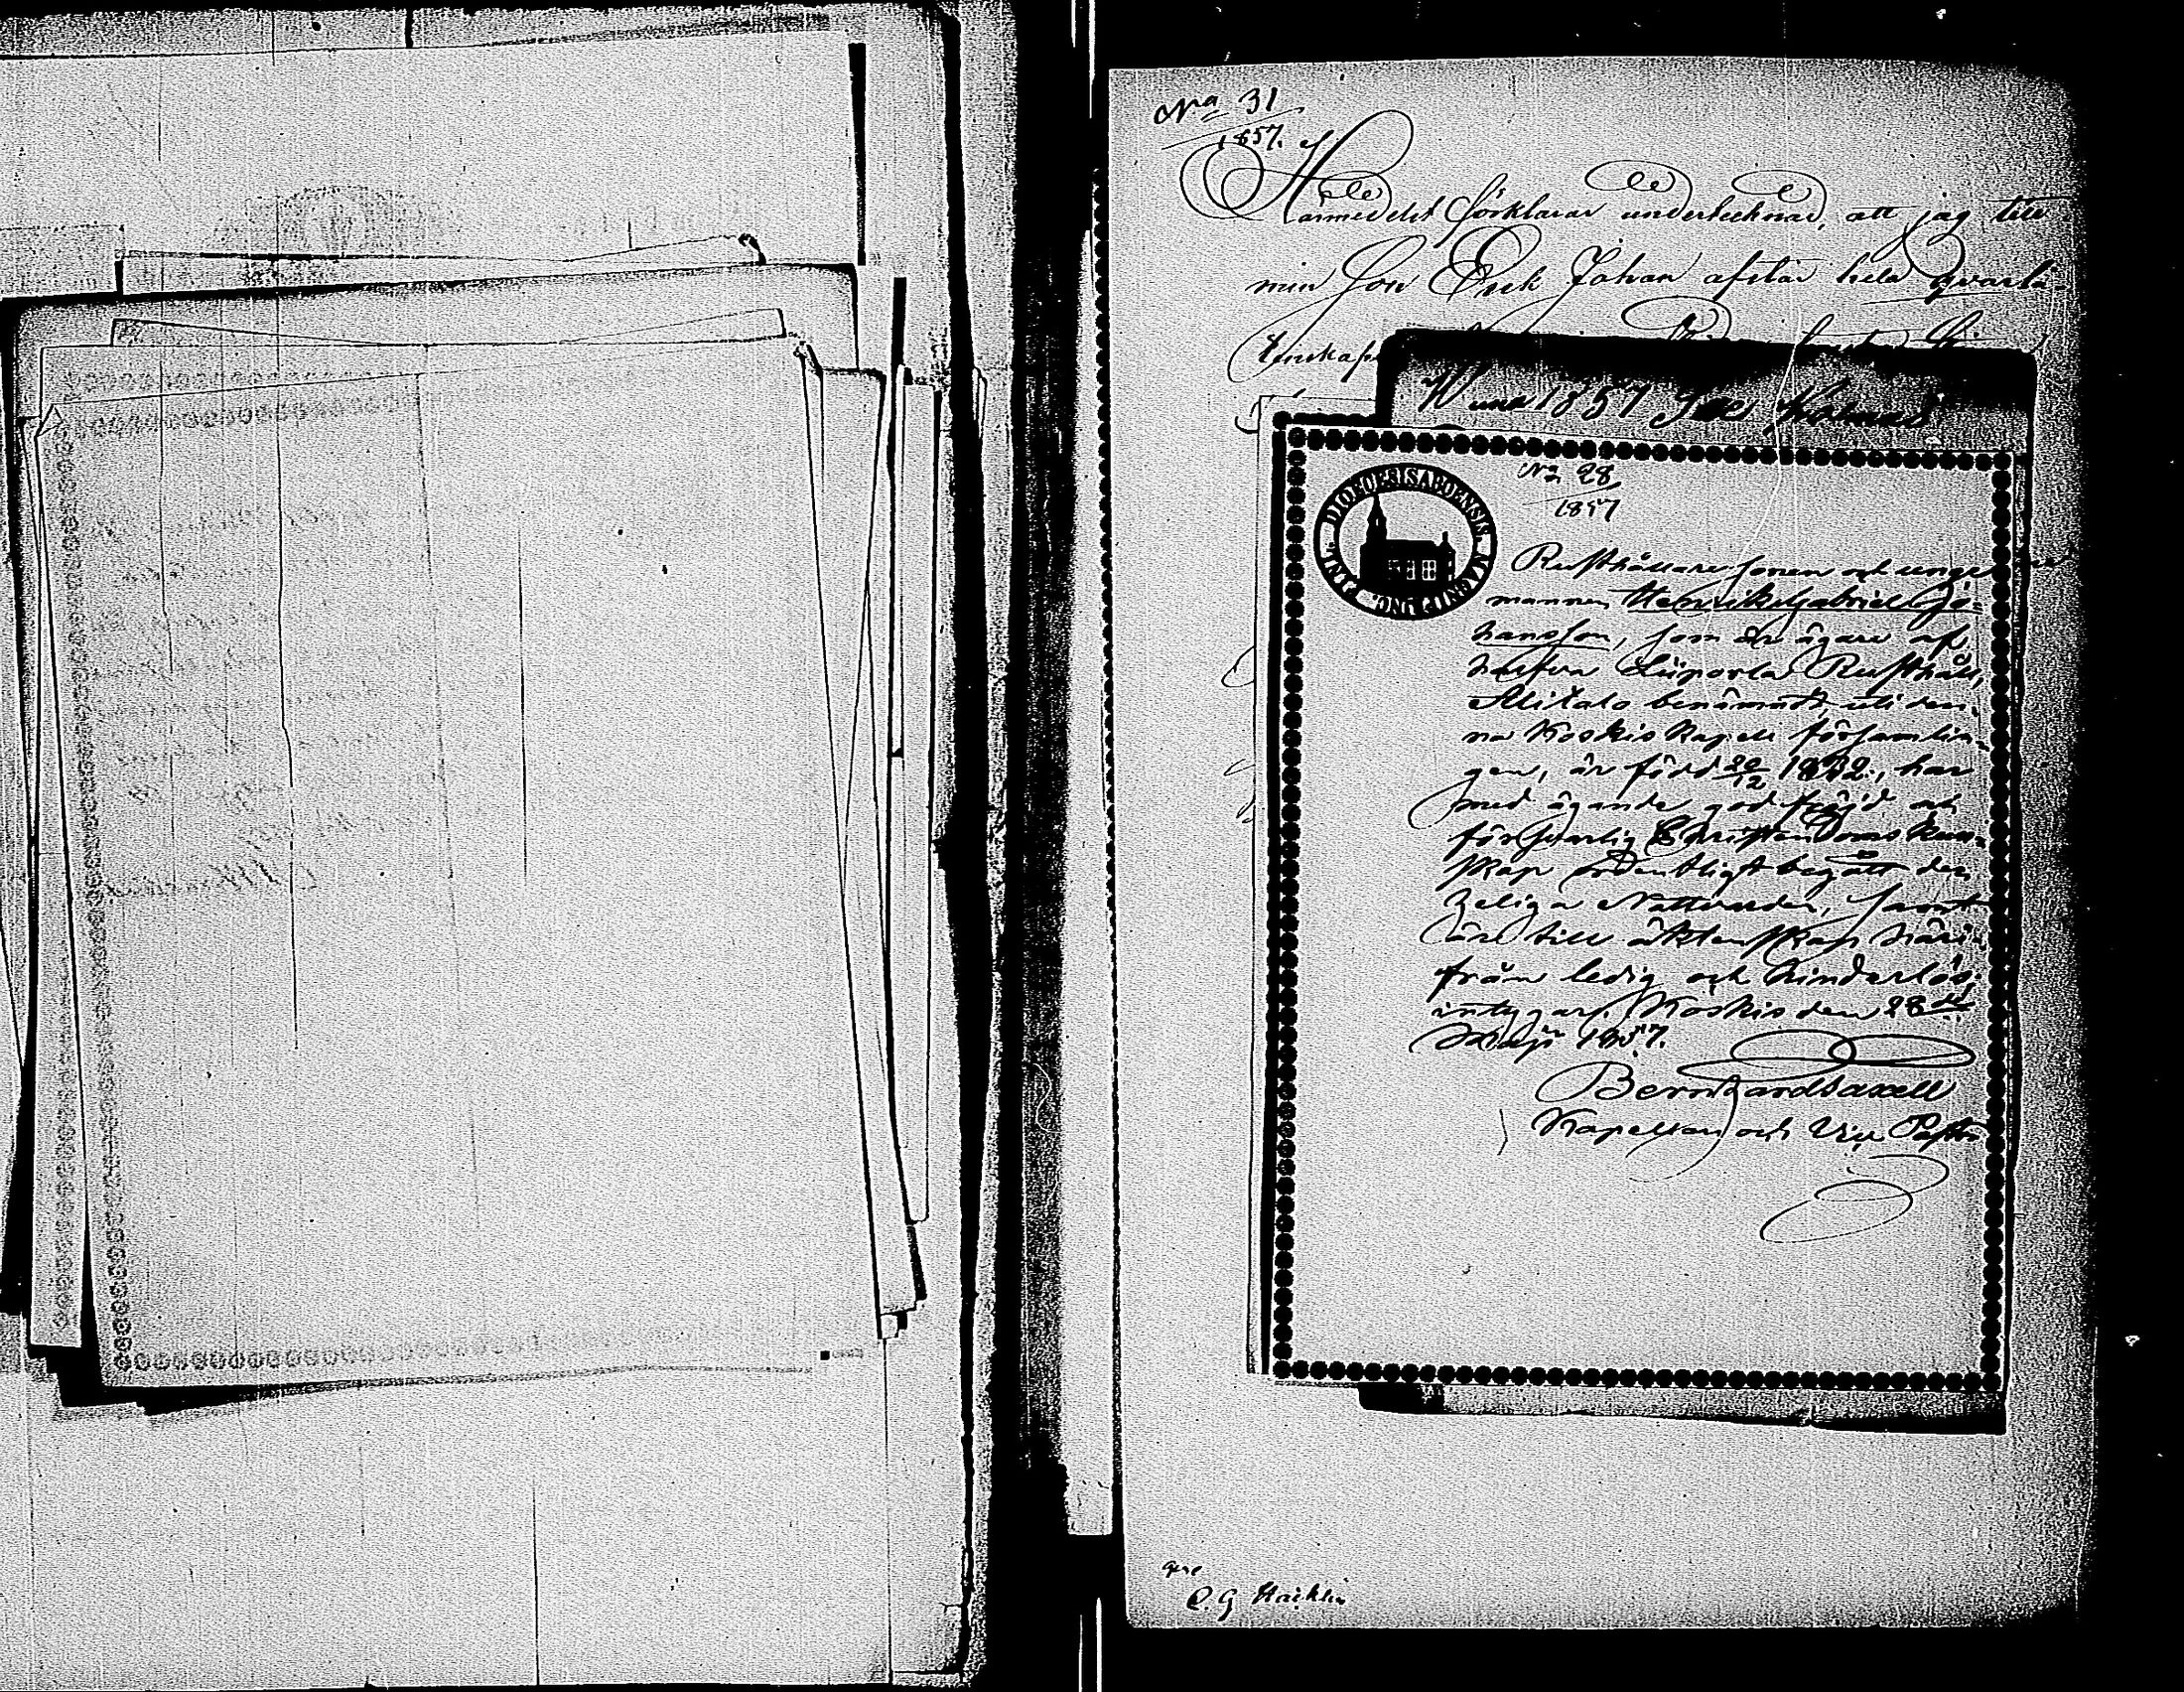 No 31
1857.
Härmedelst förklarar undertecknad, att jag till
min Son Erik Johan afstår hela qvarlå-
tenskap
1857
DIOECESIS ABOENSIS.
No 28
1857
Rusthållaresonen och unge
mannen Henrik Gabriel Jo-
hansson, som är ägare af
halfva Liiporla Rusthåll,
Alitalo benämdt, uti den-
na Koskis Kapell församlin-
gen, är född 20/12 1832, har
med ägande god frejd och
försvarlig Christendoms kun-
skap ordentligt begått den
Heliga Nattvarden, samt
är till äktenskap häri-
från ledig och hinderlös;
intygar. Koskis den 28de
Maji 1857.
Bernhard Saxell
Kapellan och Vice Pastor
C. G